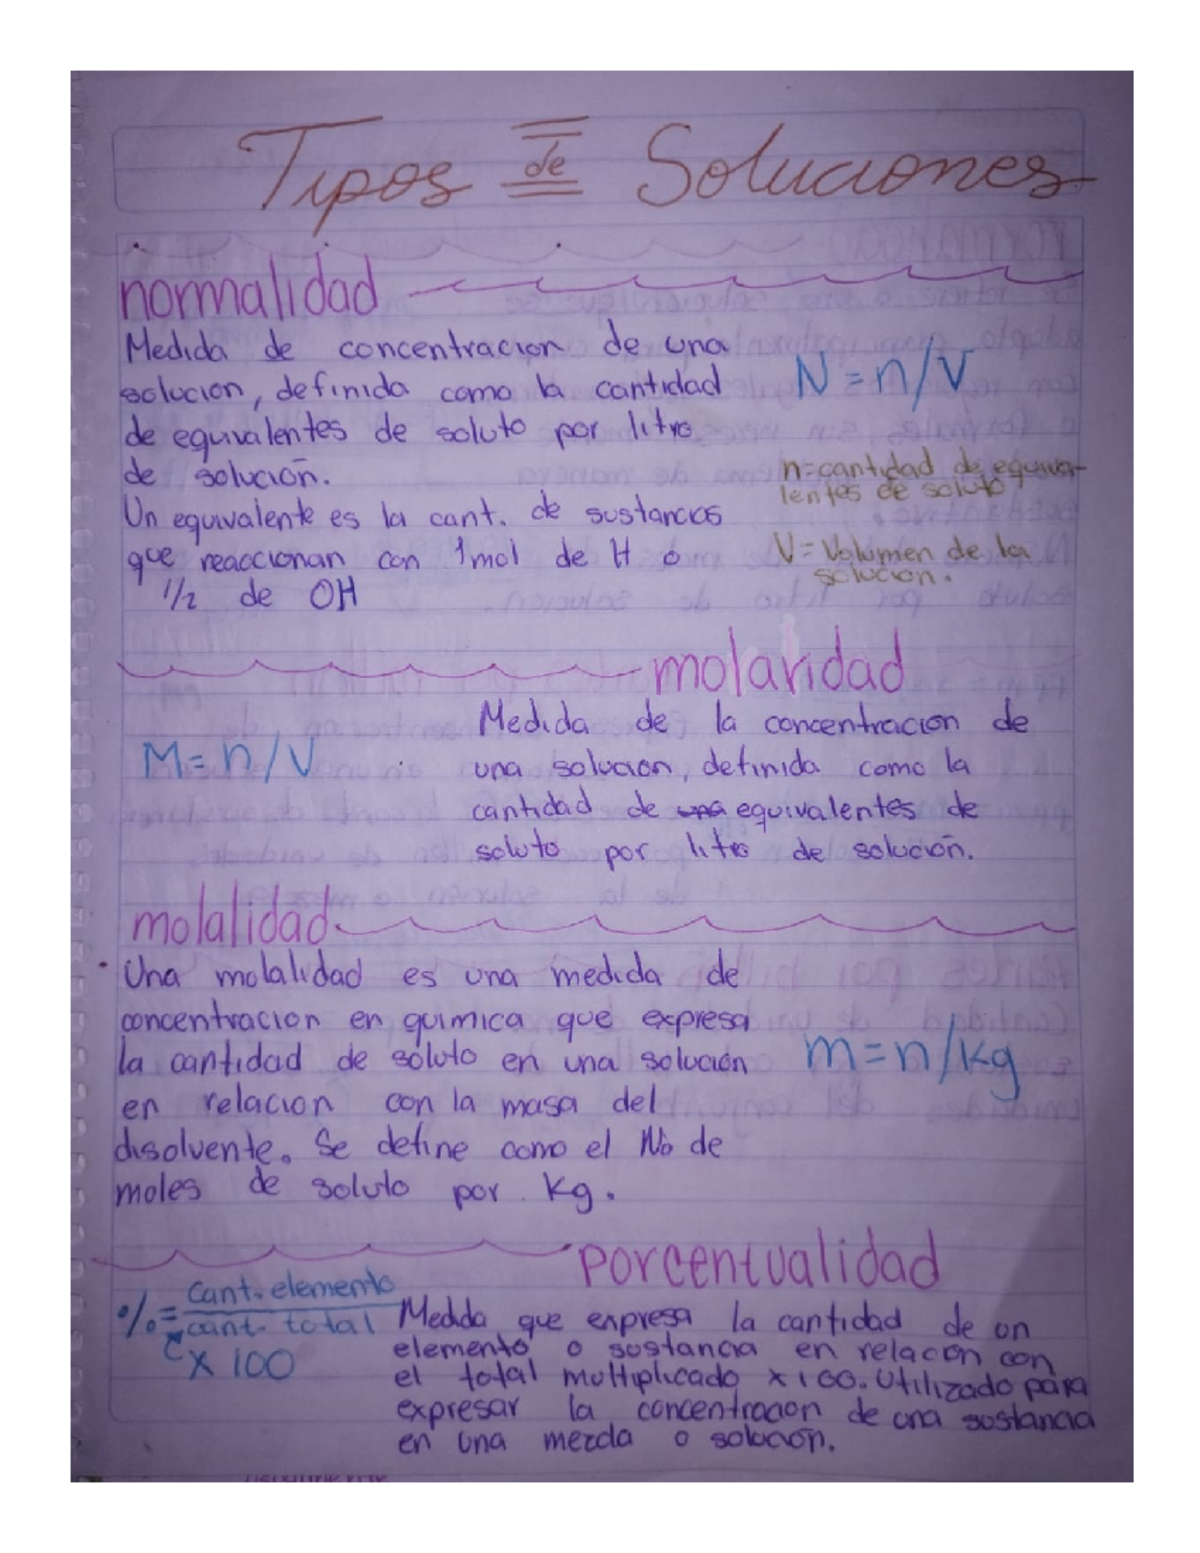 Tipos de Soluciones
normalidad
Medida de concentracion de una
solucion, definida como la cantidad
de equivalentes de soluto por litro
de solución.
Un equivalente es la cant. de sustancias
que reaccionan con 1mol de H o
1/2 de OH
N=n/V
n=cantidad de equiva-
lentes de soluto
V=Volumen de la
solucion.
molaridad
M=n/V
Medida de la concentracion de
una solucion, definida como la
cantidad de una equivalentes de
soluto por litro de solución.
molalidad
Una molalidad es una medida de
concentracion en quimica que expresa
la cantidad de soluto en una solución
en relacion con la masa del
disolvente. Se define como el No de
moles de soluto por Kg.
m=n/kg
porcentualidad
%=cant. elemento
cant. total
x 100
Medida que expresa la cantidad de un
elemento o sustancia en relacion con
el total multiplicado x100. Utilizado para
expresar la concentracion de una sustancia
en una mezcla o solucion.